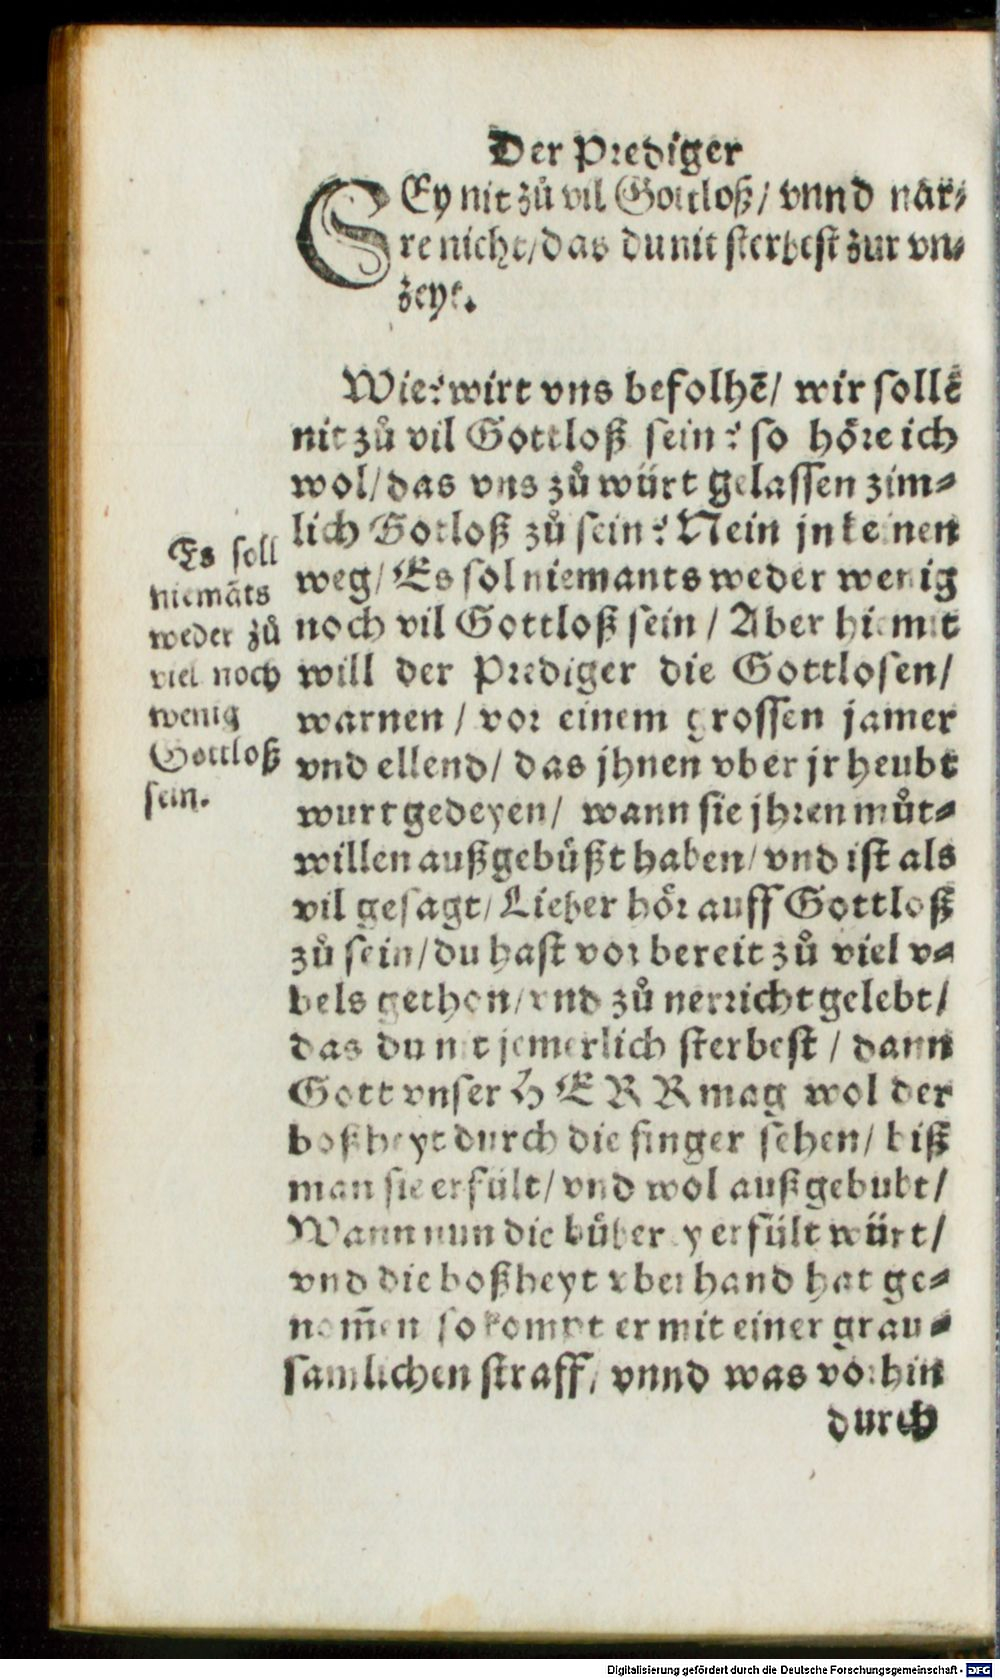 Der Prediger
SEy nit zů vil Gottloß / vnnd när⸗
re nicht / das du nit sterbest zur vn⸗
zeyt.
Wie? wirt vns befolhē / wir sollē
nit zů vil Gottloß sein? so höre ich
wol / das vns zů würt gelassen zim⸗
lich Gotloß zů sein? Nein jn keinen
weg / Es sol niemants weder wenig
noch vil Gottloß sein / Aber hiemit
will der Prediger die Gottlosen /
warnen / vor einem grossen jamer
vnd ellend / das jhnen vber jr heubt
wurt gedeyen / wann sie jhren můt⸗
willen außgebüßt haben / vnd ist als
vil gesagt / Lieber hör auff Gottloß
zů sein / du hast vor bereit zů viel v⸗
bels gethon / vnd zů nerricht gelebt /
das du nit jemerlich sterbest / dann
Gott vnser HERR mag wol der
boßheyt durch die finger sehen / biß
man sie erfült / vnd wol außgebubt /
Wann nun die bůberey erfült würt /
vnd die boßheyt vberhand hat ge⸗
nom̄en so kompt er mit einer grau⸗
samlichen straff / vnnd was vorhin
durch
Es soll
niemāts
weder zů
viel noch
wenig
Gottloß
sein.
Digitalisierung gefördert durch die Deutsche Forschungsgemeinschaft - DFG